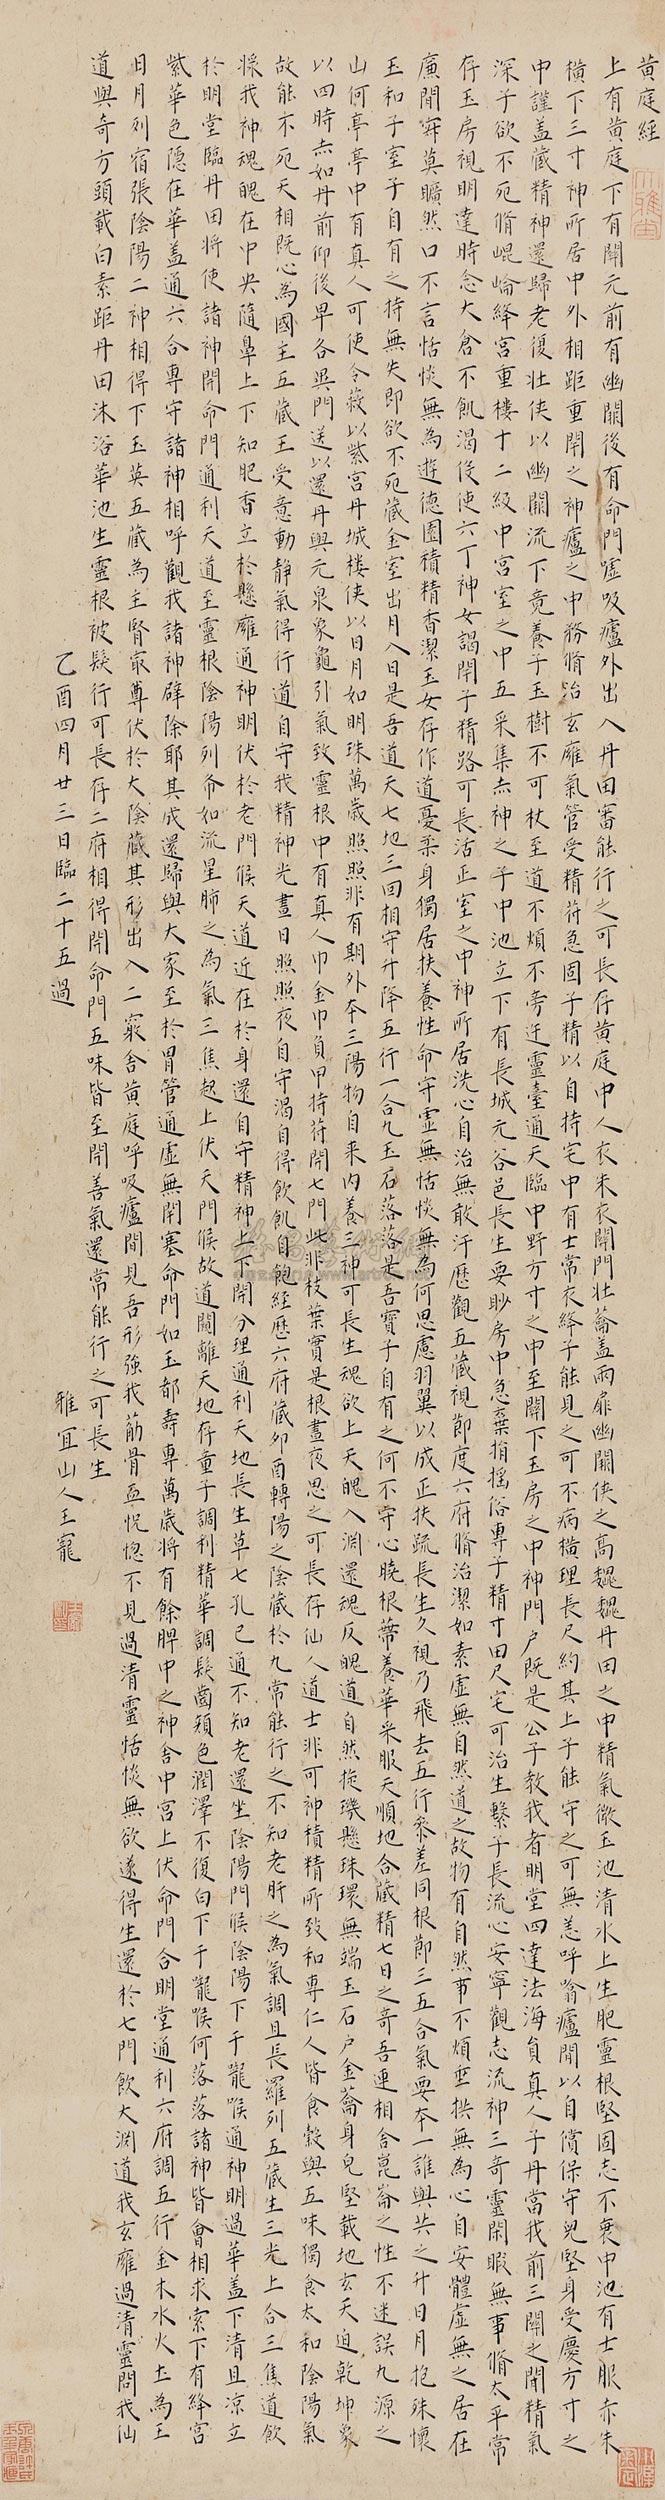 黄庭經
上有黄庭下有關元前有幽關後有命門噓吸廬外出入丹田審能行之可長存黄庭中人衣朱衣關門壯蘥蓋兩扉幽關俠之高魏魏丹田之中精氣微玉池清水上生肥靈根堅固志不衰中池有士服赤朱
橫下三寸神所居中外相距重閉之神廬之中務脩治玄廱氣管受精符急固子精以自持宅中有士常衣絳子能見之可不病橫理長尺約其上子能守之可無恙呼噏廬間以自償保守皃堅身受慶方寸之
中謹蓋藏精神還歸老復壯俠以幽關流下竟養子玉樹不可杖至道不煩不旁迕靈臺通天臨中野方寸之中至關下玉房之中神門户既是公子教我者明堂四達法海員真人子丹當我前三關之間精氣
深子欲不死脩崐崘絳宮重樓十二級中宮室之中五采集赤神之子中池立下有長城元谷邑長生要眇房中急棄捐搖俗專子精寸田尺宅可治生繫子長流心安寧觀志流神三奇靈閑暇無事脩太平常
存玉房視明達時念大倉不飢渴役使六丁神女謁閉子精路可長活正室之中神所居洗心自治無敢汙歷觀五藏視節度六府脩治潔如素虛無自然道之故物有自然事不煩垂拱無為心自安體虛無之居在
廉間寂莫曠然口不言恬惔無為遊德園積精香潔玉女存作道憂柔身獨居扶養性命守虛無恬惔無為何思慮羽翼以成正扶疏長生久視乃飛去五行參差同根節三五合氣要本一誰與共之升日月抱珠懷
玉和子室子自有之持無失即欲不死藏金室出月入日是吾道天七地三回相守升降五行一合九玉石落落是吾寶子自有之何不守心曉根蔕養華采服天順地合藏精七日之奇吾連相舍崑崙之性不迷誤九源之
山何亭亭中有真人可使令蔽以紫宮丹城樓俠以日月如明珠萬歲照照非有期外本三陽物自来内養三神可長生魂欲上天魄入淵還魂反魄道自然旋璣懸珠環無端玉石户金蘥身皃堅載地玄天迫乾坤象
以四時赤如丹前仰後卑各異門送以還丹與元泉象龜引氣致靈根中有真人巾金巾負甲持符開七門此非枝葉實是根晝夜思之可長存仙人道士非可神積精所致和專仁人皆食穀與五味獨食太和陰陽氣
故能不死天相既心為國主五藏王受意動静氣得行道自守我精神光晝日照照夜自守渴自得飲飢自飽經歷六府藏夘酉轉陽之陰藏於九常能行之不知老肝之為氣調且長羅列五藏生三光上合三焦道飲
漿我神魂魄在中央隨鼻上下知肥香立於懸廱通神明伏於老門候天道近在於身還自守精神上下開分理通利天地長生草七孔已通不知老還坐陰陽門候陰陽下于嚨喉通神明過華蓋下清且涼立
於明堂臨丹田將使諸神開命門通利天道至靈根陰陽列布如流星肺之為氣三焦起上伏天門候故道闚離天地存童子調利精華調髮齒顏色潤澤不復白下于嚨喉何落落諸神皆會相求索下有絳宮
紫華色隱在華蓋通六合專守諸神相呼觀我諸神辟除耶其成還歸與大家至於胃管通虛無閉塞命門如玉都壽專萬歲將有餘脾中之神舍中宮上伏命門合明堂通利六府調五行金木水火土為王
日月列宿張陰陽二神相得下玉英五藏為主腎最尊伏於大陰藏其形出入二竅舍黄庭呼吸廬間見吾形強我筋骨血怳惚不見過清靈恬惔無欲遂得生還於七門飲大淵道我玄廱過清靈問我仙
道與奇方頭載白素距丹田沐浴華池生靈根被髮行可長存二府相得開命門五味皆至開善氣還常能行之可長生
乙酉四月廿三日臨二十五過
雅宜山人王寵